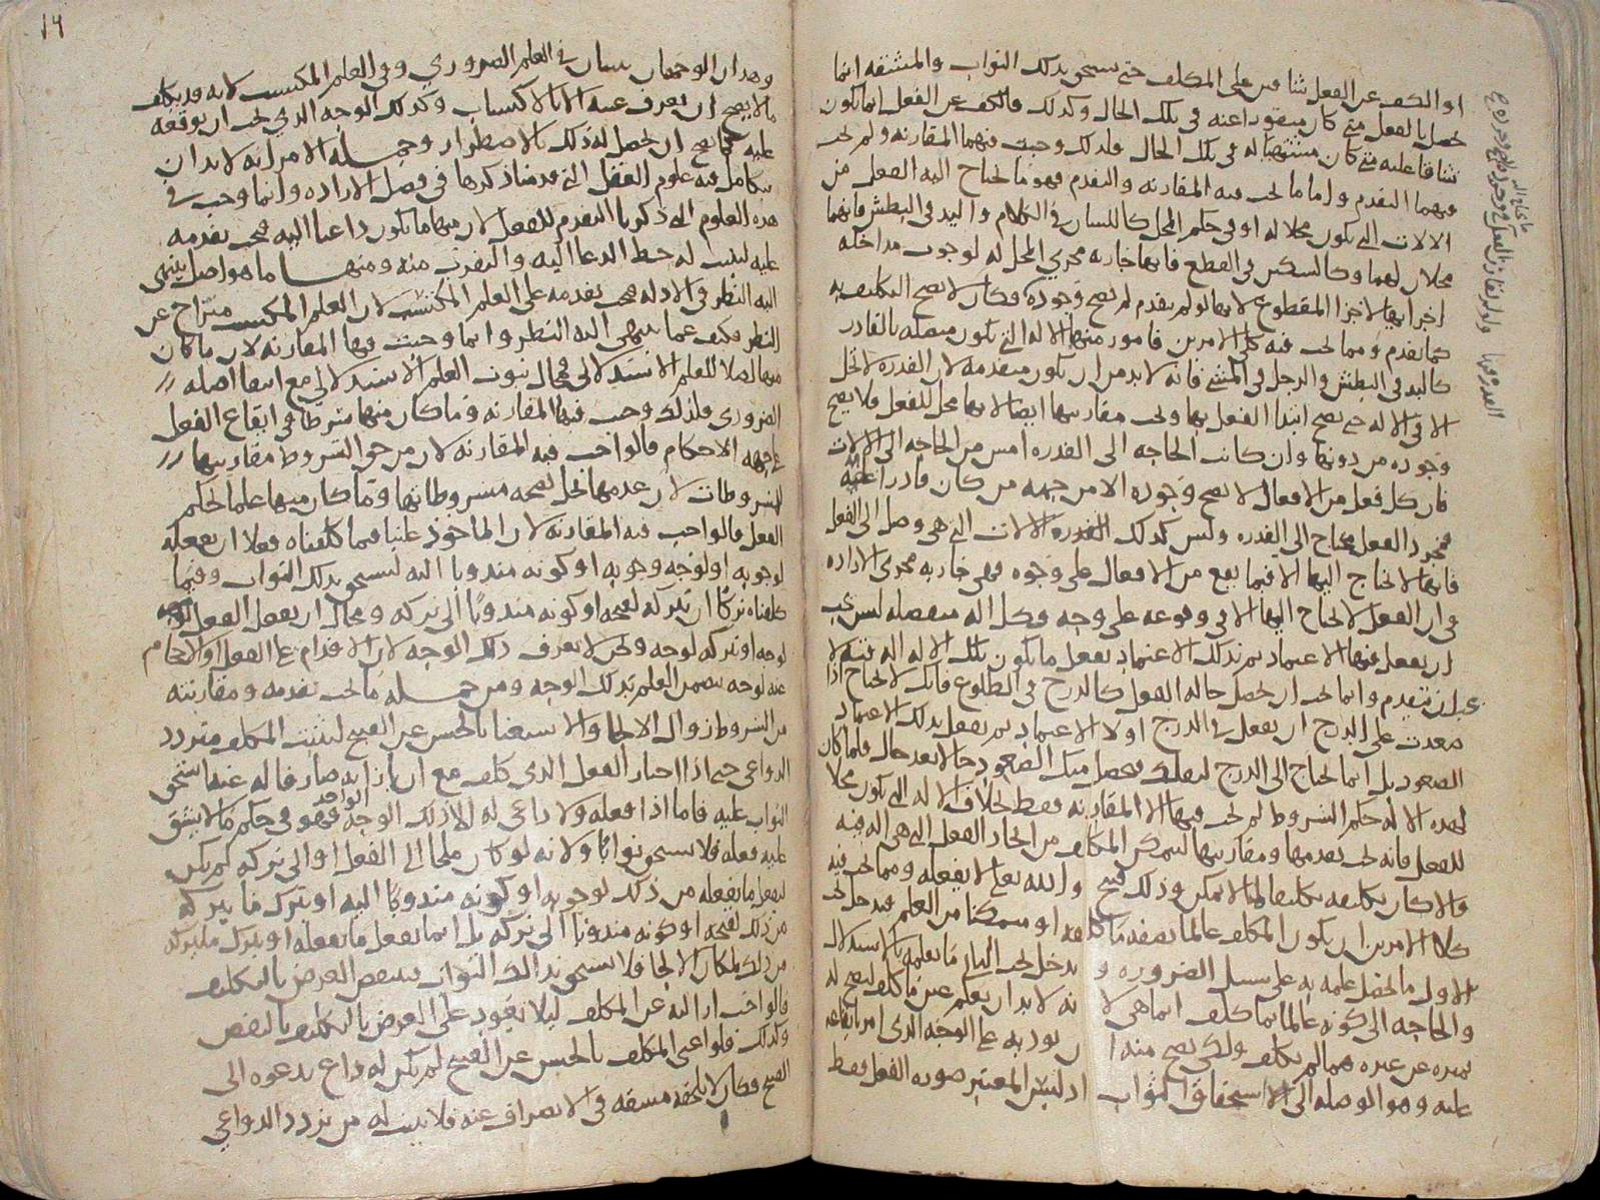 او الكف عن الفعل شاقين على المكلف حتى يستحق بذلك الثواب والمشقة انما
تحصل بالفعل متى كان منفورا عنه في تلك الحال وكذلك فالكف عن الفعل انما يكون
شاقا عليه متى كان مشتهيا له في تلك الحال فلذلك وجبت فيهما المقارنه ولم تجب
فيهما التقدم واما ما تجب فيه المقارنه والتقدم فهو ما يحتاج اليه الفعل من
الالات التي تكون محلا له او في حكم المحل كاللسان في الكلام واليد في البطش فانهما
محلان لهما وكالسكين في القطع فانها جاريه مجرى المحل له لوجوب مداخله
اجزائها لاجزا المقطوع لانها لو لم تتقدم لم يصح وجوده فكان لا يصح التكليف به
كما تقدم ومما يجب فيه كلى الامرين فامور منها الاله التي تكون متصله بالقادر
كاليد في البطش والرجل في المشي فانه لا بد من ان تكون متقدمه لان القدره لا تحل
الا في الاله حتى يصح ابتدا الفعل بها وتجب مقارنتها ايضا لانها محل للفعل فلا يصح
وجوده من دونها وان كانت الحاجه الى القدره امس من الحاجه الى الالات
فان كل فعل من الافعال لا يصح وجوده الا من جهه من كان قادرا عليه
فمجرد الفعل يحتاج الى القدره وليس كذلك الالات التي هي وصل الى الفعل
فانها لا يحتاج اليها الا فيما يقع من الافعال على وجوه فهي جاريه مجرى الاراده
في ان الفعل لا يحتاج اليها الا في وقوعه على وجه وكل اله منفصله ليس يجب
ان يفعل فيها الاعتماد ثم بذلك الاعتماد يفعل ما يكون تلك الاله اله فيه لا
يجب ان تتقدم وانما يجب ان تحصل حاله الفعل كالدرج في الطلوع فانك لا تحتاج اذا
صعدت على الدرج ان يفعل في الدرج اولا الاعتماد ثم يفعل بذلك الاعتماد
الصعود بل انما يحتاج الى الدرج ليحصل منك الصعود حالا بعد حال فلما كان
لهذه الاله حكم الشروط لم تجب فيها الا المقارنه فقط بخلاف الاله التي تكون محلا
للفعل فانه يجب تقدمها ومقارنتها ليتمكن المكلف من ايجاد الفعل التي هي اله فيه
والا كان تكليفه تكليفا لما لا يمكن وذلك قبيح والله تعلى لا يفعله ومما يجب فيه
كلا الامرين ان يكون المكلف عالما بصفه ما كلفه او متمكنا من العلم فيدخل تحت
الاول ما يحصل علمه به على سبيل الضروره و يدخل تحت الثاني ما يعلمه بالاستدلال
والحاجه الى كونه عالما بما كلف انما هي لا نه لا بد ان يعلم عين ما كلف ليصح له
تميزه عن غيره مما لم يكلف ولكي يصح منه ا ن يوديه على الوجه الذي امر بايقاعه
عليه وهو الوصله الى استحقاق الثواب اذ ليس المعتبر صوره الفعل فقط
وهذان الوجهان سيان في العلم الضروري وفي العلم المكتسب لانه قد يكلف
ما لا يصح ان يعرف عينه الا بالاكتساب وكذلك الوجه الذي يجب ان يوقعه
عليه كما يصح ان يحصل له ذلك بالاضطرار وجمله الامر انه لا بد ان
يتكامل فيه علوم العقل التي قدمنا ذكرها في فصل الاراده وانما وجب في
هذه العلوم التي ذكرنا التقدم للفعل لان منها ما يكون داعيا اليه فيجب تقدمه
عليه ليثبت له حظ الدعا اليه والتقرب منه ومنها ما هو اصل ينتهى
اليه النظر في الادله فيجب تقدمه على العلم المكتسب لان العلم المكتسب متراخ عن
النظر فكيف عما ينتهى اليه النظر وانما وجبت فيها المقارنه لان ما كان
منها اصلا للعلم الاستدلالي فمحال ثبوت العلم الاستدلالي مع انتفا اصله
الضروري فلذلك وجب فيها المقارنه وما كان منها شرطا في ايقاع الفعل
على جهه الاحكام فالواجب فيه المقارنه لان من حق الشروط مقارنتها
للمشروطات لان عدمها يخل بصحه مشروطاتها وما كان منها علما بحكم
الفعل فالواجب فيه المقارنه لان الماخوذ علينا فيما كلفناه فعلا ان نفعله
لوجوبه او لوجه وجوبه او كونه مندوبا اليه ليستحق بذلك الثواب وفيما
كلفناه تركا ان نتركه لقبحه او كونه مندوبا الى تركه ومحال ان يفعل الفعل
لوجه او نتركه لوجه ونحن لا نعرف ذلك الوجه لان الاقدام على الفعل او الاحجام
عنه لوجه يتضمن العلم بذلك الوجه ومن جمله ما يجب تقدمه ومقارنته
من الشروط زوال الالجا والاستغنا بالحسن عن القبيح ليثبت المكلف متردد
الدواعي حتى اذا اختار الفعل الذي كلف مع ان بازايه صارفا له عنه استحق
الثواب عليه فاما اذا فعله ولا داعي له الا ذلك الوجه الواحد فهو في حكم ما لا يشق
عليه فعله فلا يستحق ثوابا ولانه لو كان ملجا الى الفعل او الى تركه لم يكن
ليفعل ما يفعله من ذلك لوجوبه او كونه مندوبا اليه او يترك ما يتركه
من ذلك لقبحه او كونه مندوبا الى تركه بل انما يفعل ما يفعله او يترك ما يتركه
من ذلك لمكان الالجا فلا يستحق بذلك الثواب فينتقض الغرض بالتكليف
فالواجب ازالته عن المكلف ليلا يعود على الغرض بالتكليف بالنقض
وكذلك فلو اغني المكلف بالحسن عن القبيح لم يكن له داع يدعوه الى
القبيح فكان لا يلحقه مشقه في الانصراف عنه فلا يثبت له من تردد الدواعي